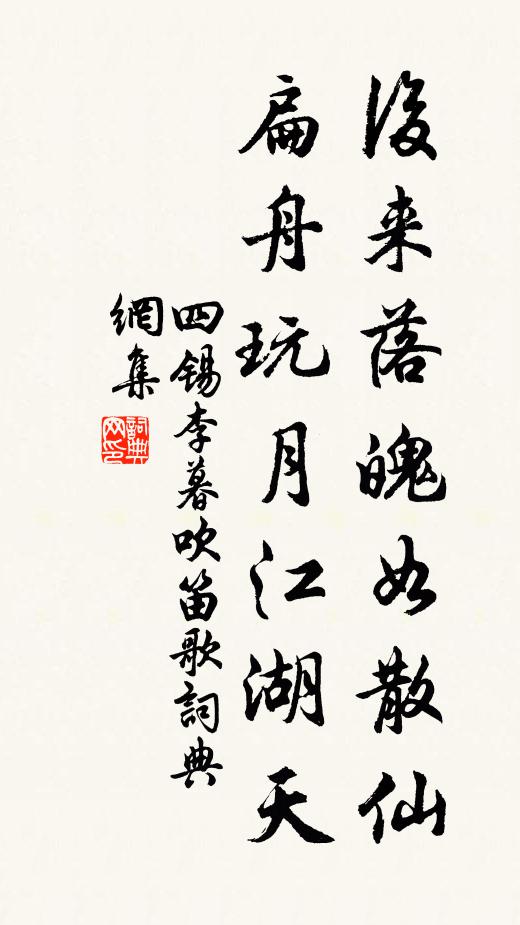 後来落魄如散仙
扁舟玩月江湖天
四錫李暮吹笛歌詞典
網集
詞典
网印